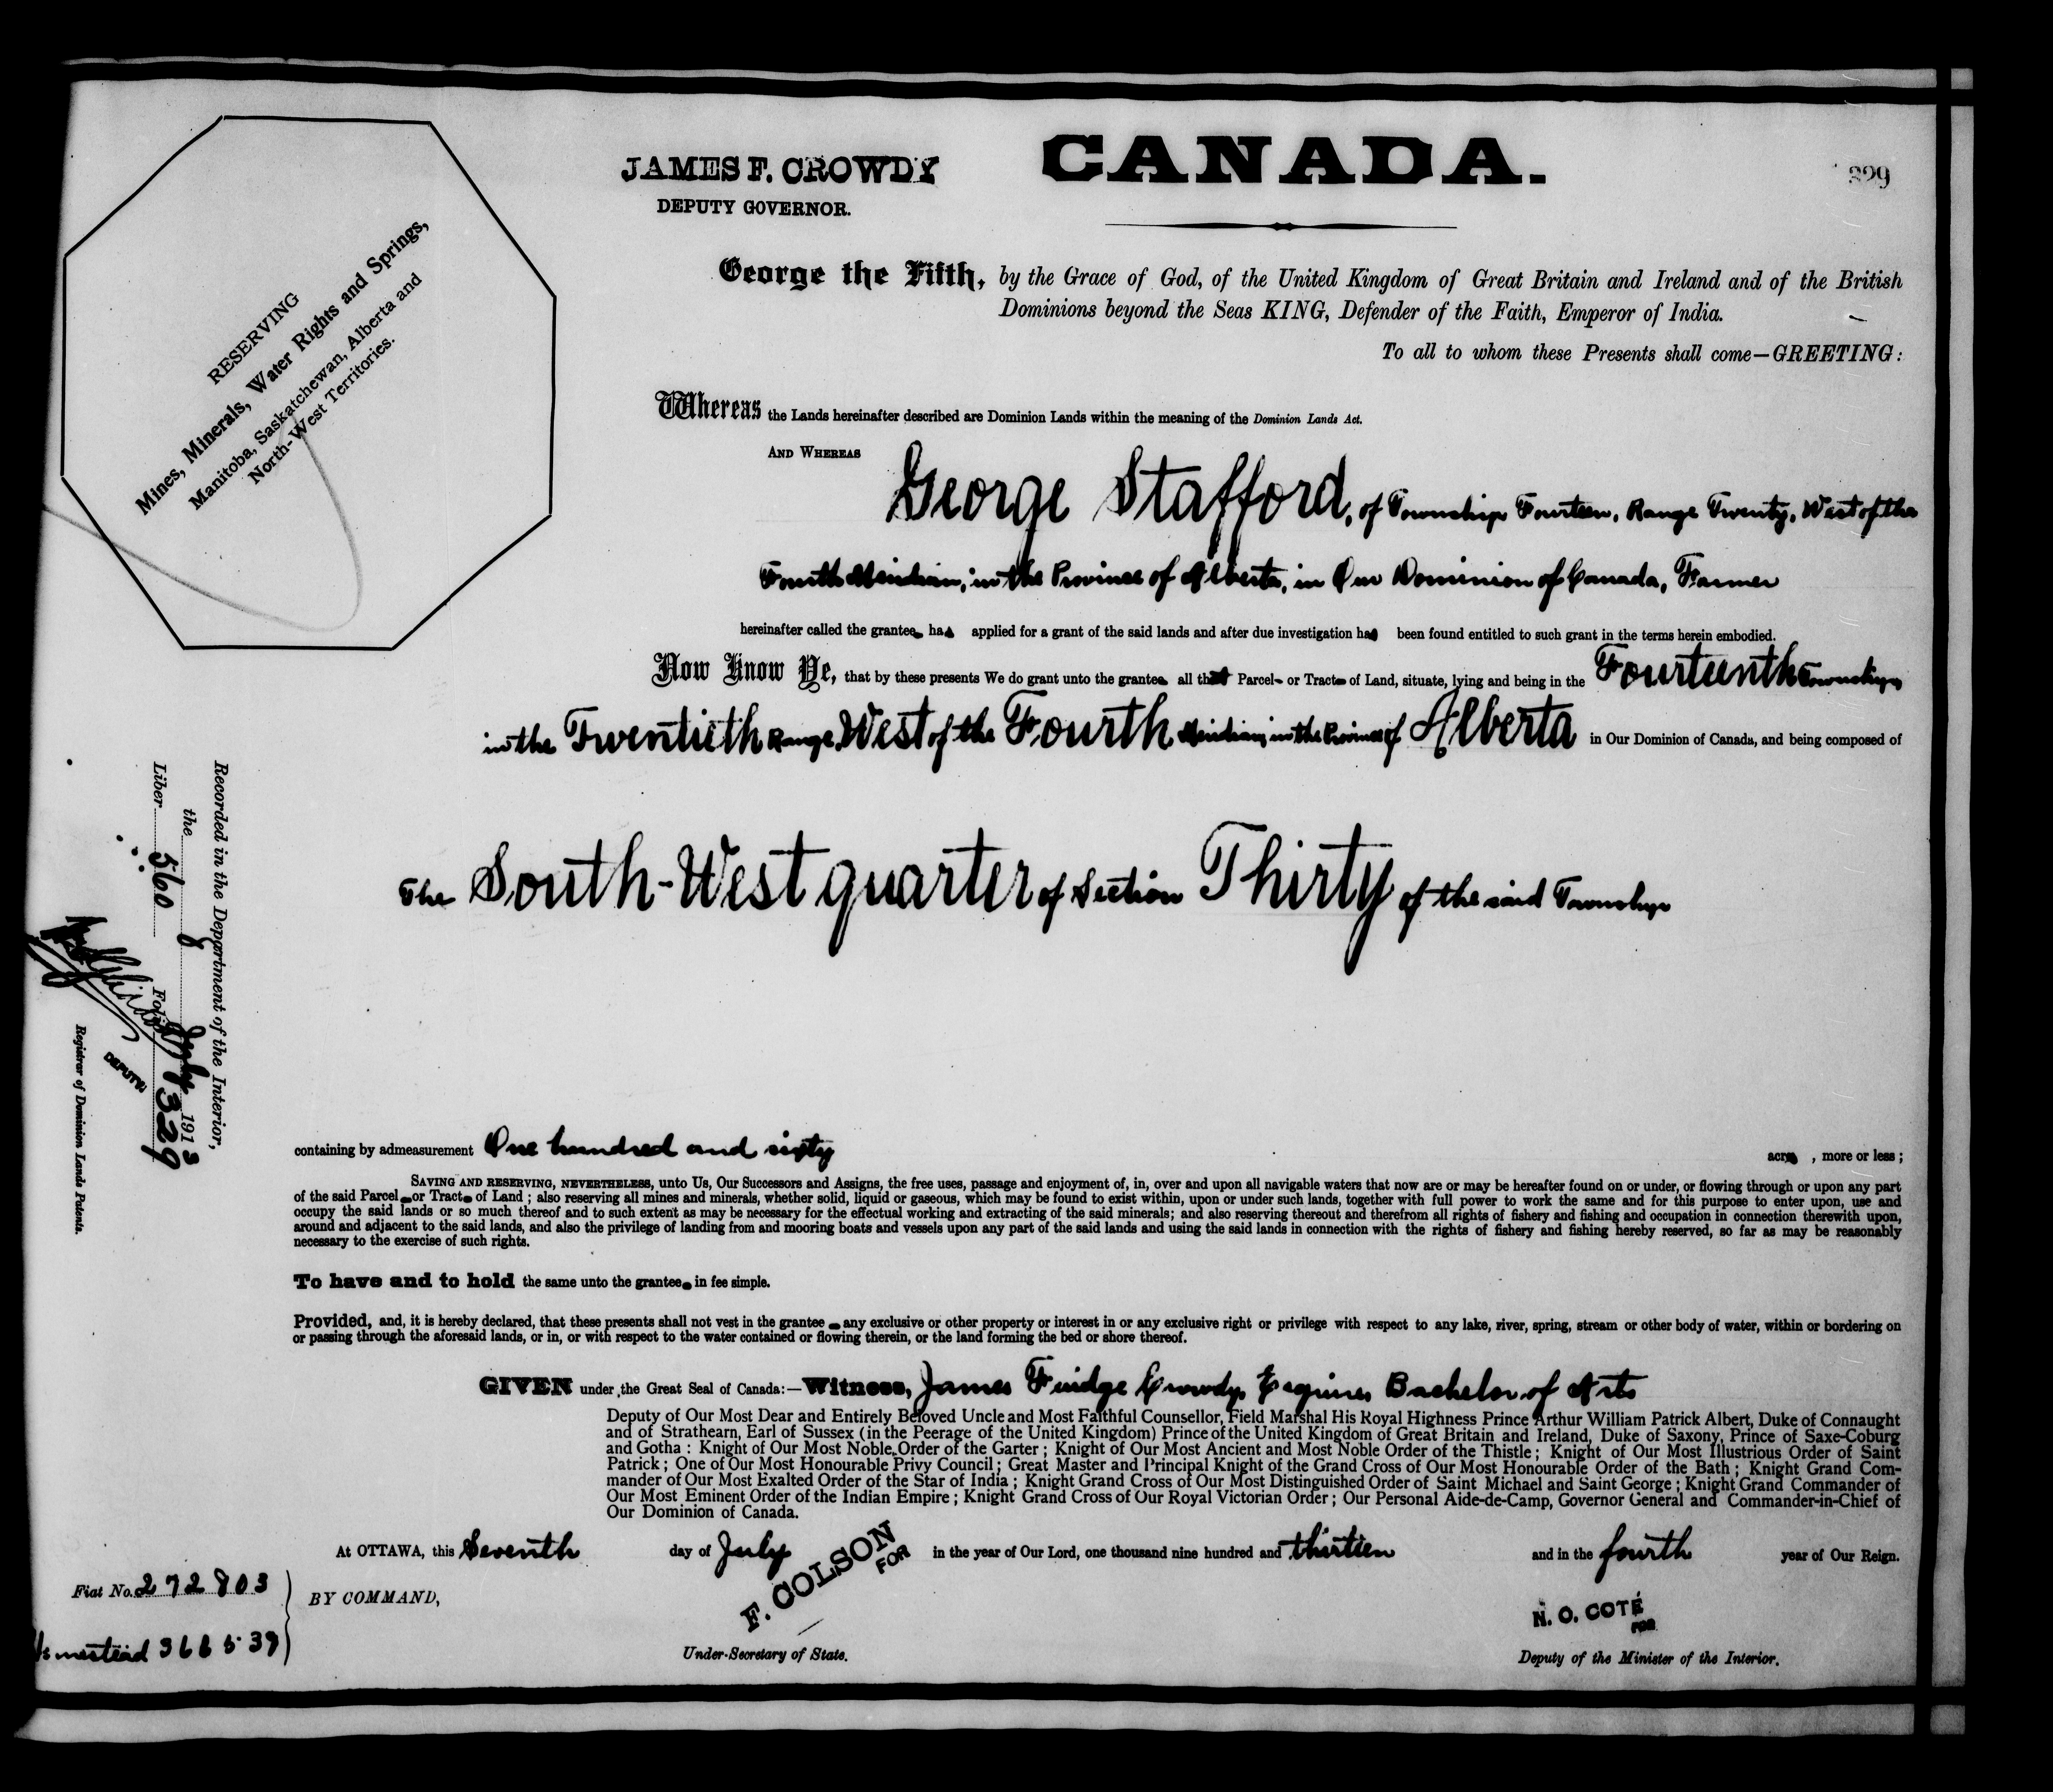 CANADA.
JAMES F. CROWDY
DEPUTY GOVERNOR.
329
RESERVING
Mines, Minerals, Water Rights and Springs,
Manitoba, Saskatchewan, Alberta and
North-West Territories.
George the Fifth, by the Grace of God, of the United Kingdom of Great Britain and Ireland and of the British
Dominions beyond the Seas KING, Defender of the Faith, Emperor of India.
To all to whom these Presents shall come—GREETING:
Whereas the Lands hereinafter described are Dominion Lands within the meaning of the Dominion Lands Act.
AND WHEREAS George Stafford, of Township Fourteen, Range Twenty, West of the
Fourth Meridian, in the Province of Alberta, in Our Dominion of Canada, Farmer
hereinafter called the grantee has applied for a grant of the said lands and after due investigation has been found entitled to such grant in the terms herein embodied.
Now Know Ye, that by these presents We do grant unto the grantee all that Parcel or Tract of Land, situate, lying and being in the Fourteenth Township
in the Twentieth Range, West of the Fourth Meridian, in the Province of Alberta in Our Dominion of Canada, and being composed of
The South-West quarter of Section Thirty of the said Township
Recorded in the Department of the Interior,
the 8 July 1913
Liber 560 Folio 329
DEPUTY
Registrar of Dominion Lands Patents.
containing by admeasurement One hundred and sixty acres, more or less;
SAVING AND RESERVING, NEVERTHELESS, unto Us, Our Successors and Assigns, the free uses, passage and enjoyment of, in, over and upon all navigable waters that now are or may be hereafter found on or under, or flowing through or upon any part
of the said Parcel or Tract of Land; also reserving all mines and minerals, whether solid, liquid or gaseous, which may be found to exist within, upon or under such lands, together with full power to work the same and for this purpose to enter upon, use and
occupy the said lands or so much thereof and to such extent as may be necessary for the effectual working and extracting of the said minerals; and also reserving thereout and therefrom all rights of fishery and fishing and occupation in connection therewith upon,
around and adjacent to the said lands, and also the privilege of landing from and mooring boats and vessels upon any part of the said lands and using the said lands in connection with the rights of fishery and fishing hereby reserved, so far as may be reasonably
necessary to the exercise of such rights.
To have and to hold the same unto the grantee in fee simple.
Provided, and, it is hereby declared, that these presents shall not vest in the grantee any exclusive or other property or interest in or any exclusive right or privilege with respect to any lake, river, spring, stream or other body of water, within or bordering on
or passing through the aforesaid lands, or in, or with respect to the water contained or flowing therein, or the land forming the bed or shore thereof.
GIVEN under the Great Seal of Canada:—Witness, James Fuidge Crowdy, Esquire, Bachelor of Arts
Deputy of Our Most Dear and Entirely Beloved Uncle and Most Faithful Counsellor, Field Marshal His Royal Highness Prince Arthur William Patrick Albert, Duke of Connaught
and of Strathearn, Earl of Sussex (in the Peerage of the United Kingdom) Prince of the United Kingdom of Great Britain and Ireland, Duke of Saxony, Prince of Saxe-Coburg
and Gotha: Knight of Our Most Noble Order of the Garter; Knight of Our Most Ancient and Most Noble Order of the Thistle; Knight of Our Most Illustrious Order of Saint
Patrick; One of Our Most Honourable Privy Council; Great Master and Principal Knight of the Grand Cross of Our Most Honourable Order of the Bath; Knight Grand Com-
mander of Our Most Exalted Order of the Star of India; Knight Grand Cross of Our Most Distinguished Order of Saint Michael and Saint George; Knight Grand Commander of
Our Most Eminent Order of the Indian Empire; Knight Grand Cross of Our Royal Victorian Order; Our Personal Aide-de-Camp, Governor General and Commander-in-Chief of
Our Dominion of Canada.
At OTTAWA, this Seventh day of July in the year of Our Lord, one thousand nine hundred and thirteen and in the fourth year of Our Reign.
Fiat No. 272803
Homestead 366539
BY COMMAND,
F. COLSON
FOR
Under-Secretary of State.
N. O. COTÉ
FOR
Deputy of the Minister of the Interior.